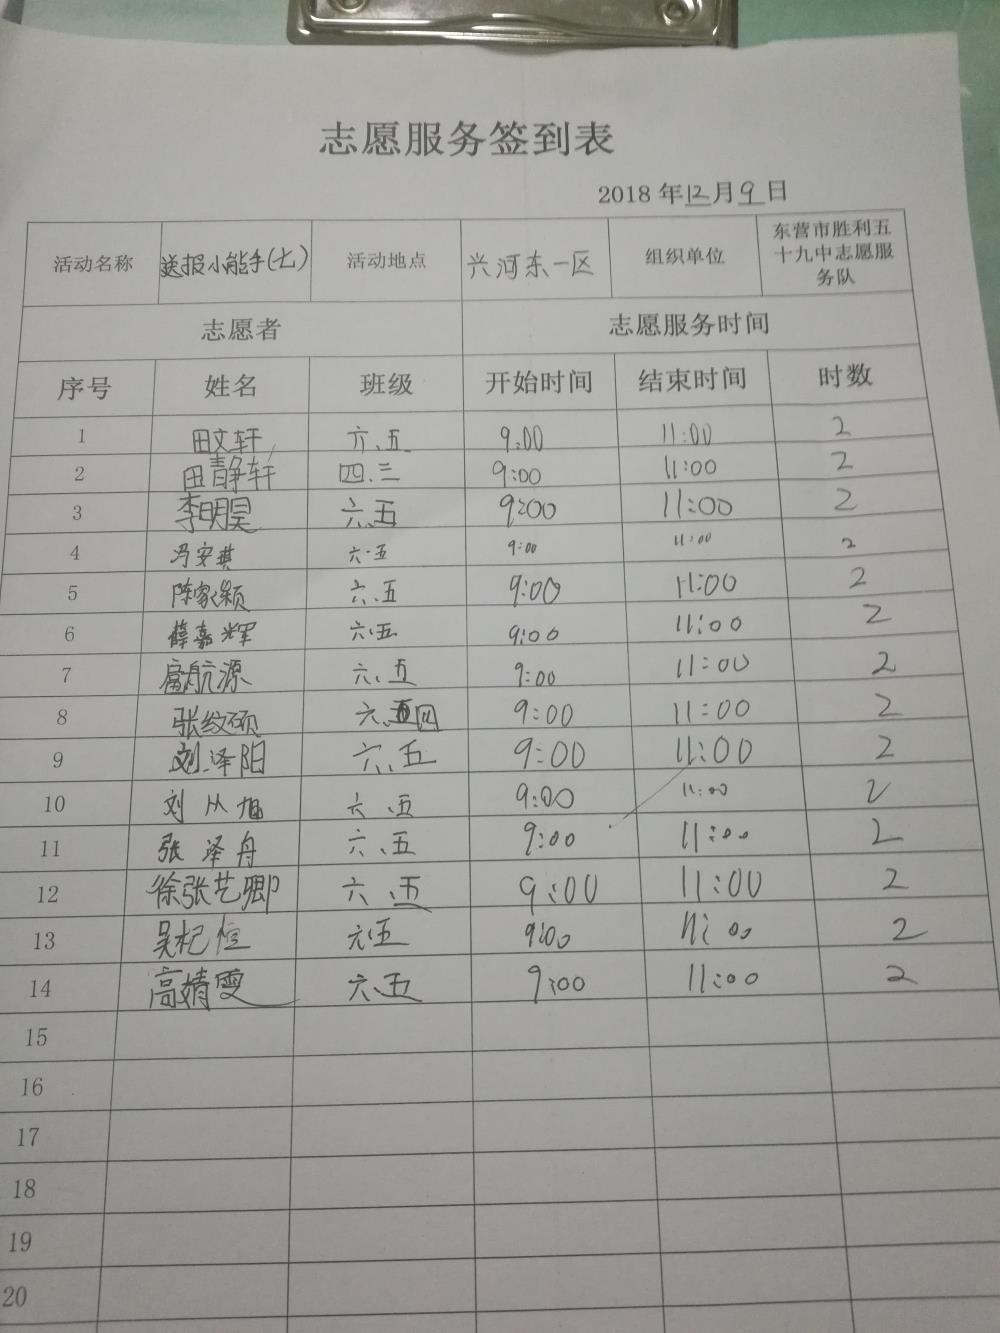 志愿服务签到表
2018年12月9日
活动名称 送报小能手(七) 活动地点 兴河东一区 组织单位 东营市胜利五
十九中志愿服
务队
志愿者 志愿服务时间
序号 姓名 班级 开始时间 结束时间 时数
1 田文轩 六.五 9:00 11:00 2
2 田静轩 四.三 9:00 11:00 2
3 李明昊 六.五 9:00 11:00 2
4 冯安琪 六.五 9:00 11:00 2
5 陈家颖 六、五 9:00 11:00 2
6 薛嘉辉 六.五 9:00 11:00 2
7 航源 六、五 9:00 11:00 2
8 张纹硕 六、四 9:00 11:00 2
9 刘泽阳 六、五 9:00 11:00 2
10 刘从旭 六、五 9:00 11:00 2
11 张泽舟 六、五 9:00 11:00 2
12 徐张艺卿 六、五 9:00 11:00 2
13 吴杞恒 六.五 9:00 11:00 2
14 高婧雯 六、五 9:00 11:00 2
15
16
17
18
19
20